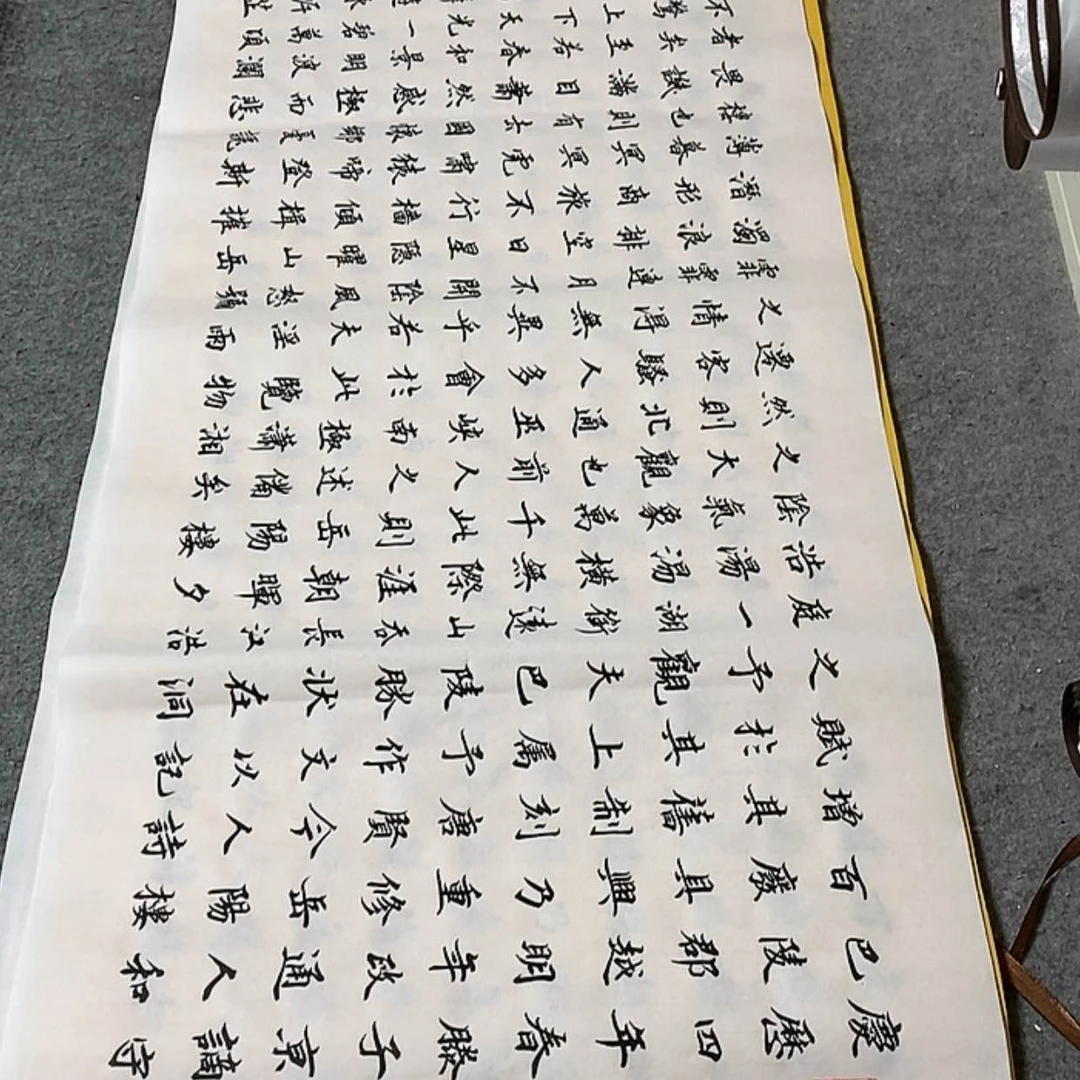 慶歷四年春滕子京謫守
巴陵郡越明年政通人和
百廢具興乃重修岳陽樓
增其舊制刻唐賢今人詩
賦於其上屬予作文以記
之予觀夫巴陵勝狀在洞
庭一湖銜遠山吞長江浩
浩湯湯橫無際涯朝暉夕
陰氣象萬千此則岳陽樓
之大觀也前人之述備矣
然則北通巫峽南極瀟湘
遷客騷人多會於此覽物
之情得無異乎若夫淫雨
霏霏連月不開陰風怒號
濁浪排空日星隱曜山岳
潛形商旅不行檣傾楫摧
薄暮冥冥虎嘯猿啼登斯
樓也則有去國懷鄉憂讒
畏譏滿目蕭然感極而悲
者矣至若春和景明波瀾
不驚上下天光一碧萬頃